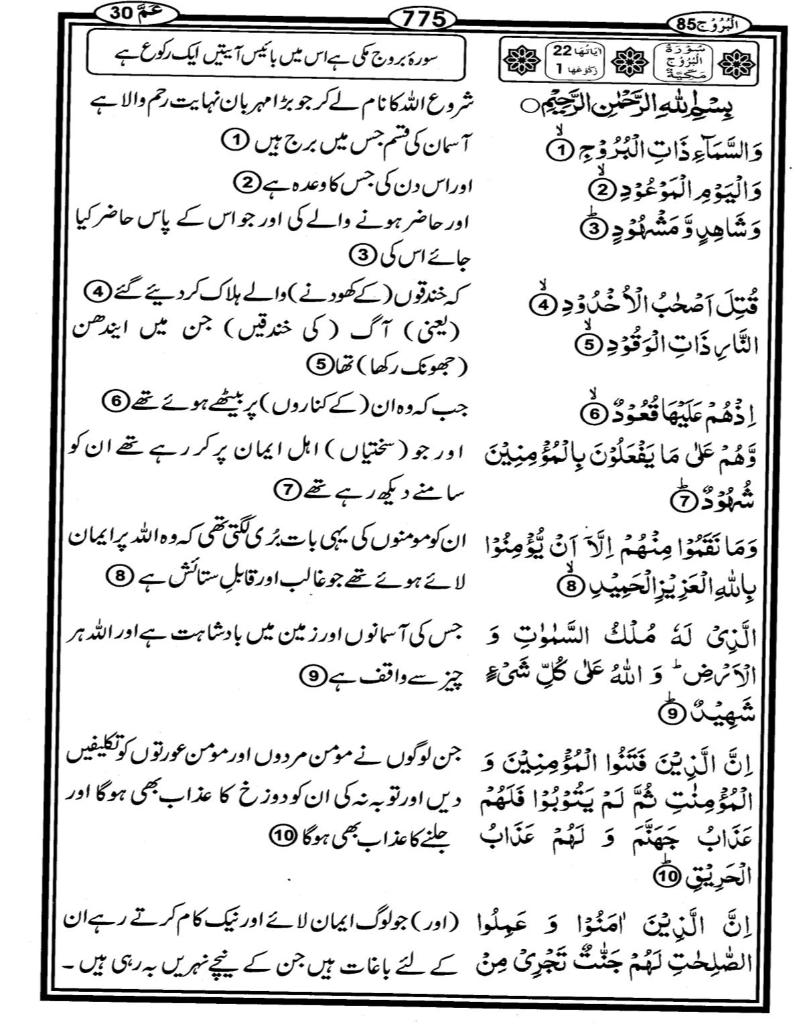 البُرُوْج85 775 عَمَّ 30
سُوْرَةُ الْبُرُوْجِ مَكِّيَّةٌ
اٰیَاتُهَا 22 رُكُوْعُهَا 1
سورۂ بروج مکی ہے اس میں بائیس آیتیں ایک رکوع ہے
بِسْمِ اللّٰهِ الرَّحْمٰنِ الرَّحِيْمِ○
شروع اللہ کا نام لے کر جو بڑا مہربان نہایت رحم والا ہے
وَالسَّمَآءِ ذَاتِ الْبُرُوْجِ ۙ①
آسمان کی قسم جس میں برج ہیں ①
وَالْيَوْمِ الْمَوْعُوْدِ ۙ②
اور اس دن کی جس کا وعدہ ہے ②
وَشَاهِدٍ وَّمَشْهُوْدٍ ؕ③
اور حاضر ہونے والے کی اور جو اس کے پاس حاضر کیا
جائے اس کی ③
قُتِلَ اَصْحٰبُ الْاُخْدُوْدِ ۙ④
کہ خندقوں (کے کھودنے) والے ہلاک کر دیئے گئے ④
النَّارِ ذَاتِ الْوَقُوْدِ ۙ⑤
(یعنی) آگ (کی خندقیں) جن میں ایندھن
(جھونک رکھا) تھا ⑤
اِذْهُمْ عَلَيْهَا قُعُوْدٌ ۙ⑥
جب کہ وہ ان (کے کناروں) پر بیٹھے ہوئے تھے ⑥
وَّهُمْ عَلٰى مَا يَفْعَلُوْنَ بِالْمُؤْمِنِيْنَ
شُهُوْدٌ ؕ⑦
اور جو (سختیاں) اہل ایمان پر کر رہے تھے ان کو
سامنے دیکھ رہے تھے ⑦
وَمَا نَقَمُوْا مِنْهُمْ اِلَّآ اَنْ يُّؤْمِنُوْا
بِاللّٰهِ الْعَزِيْزِ الْحَمِيْدِ ۙ⑧
ان کو مومنوں کی یہی بات بُری لگتی تھی کہ وہ اللہ پر ایمان
لائے ہوئے تھے جو غالب اور قابلِ ستائش ہے ⑧
الَّذِيْ لَهٗ مُلْكُ السَّمٰوٰتِ وَ
الْاَرْضِ ؕ وَ اللّٰهُ عَلٰى كُلِّ شَيْءٍ
شَهِيْدٌ ؕ⑨
جس کی آسمانوں اور زمین میں بادشاہت ہے اور اللہ ہر
چیز سے واقف ہے ⑨
اِنَّ الَّذِيْنَ فَتَنُوا الْمُؤْمِنِيْنَ وَ
الْمُؤْمِنٰتِ ثُمَّ لَمْ يَتُوْبُوْا فَلَهُمْ
عَذَابُ جَهَنَّمَ وَ لَهُمْ عَذَابُ
الْحَرِيْقِ ؕ⑩
جن لوگوں نے مؤمن مردوں اور مومن عورتوں کو تکلیفیں
دیں اور توبہ نہ کی ان کو دوزخ کا عذاب بھی ہوگا اور
جلنے کا عذاب بھی ہوگا ⑩
اِنَّ الَّذِيْنَ اٰمَنُوْا وَ عَمِلُوا
الصّٰلِحٰتِ لَهُمْ جَنّٰتٌ تَجْرِيْ مِنْ
(اور) جو لوگ ایمان لائے اور نیک کام کرتے رہے ان
کے لئے باغات ہیں جن کے نیچے نہریں بہ رہی ہیں ۔